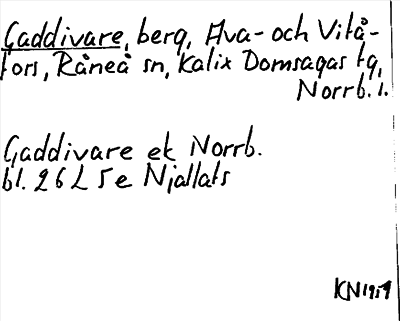 Gaddivare, berg, Hva- och Vitå-
fors, Råneå sn, Kalix Domsagas tg,
Norrb. l.
Gaddivare ek Norrb.
bl. 26 L 5 e Njallats
KN 1959